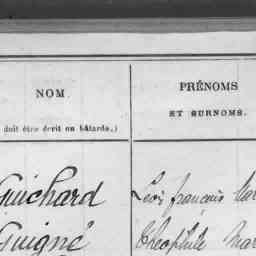 NOM
PRÉNOMS
ET SURNOMS.
doit être écrit en bâtarde.)
Guichard
Léon françois
Guigné
Théophile Mar